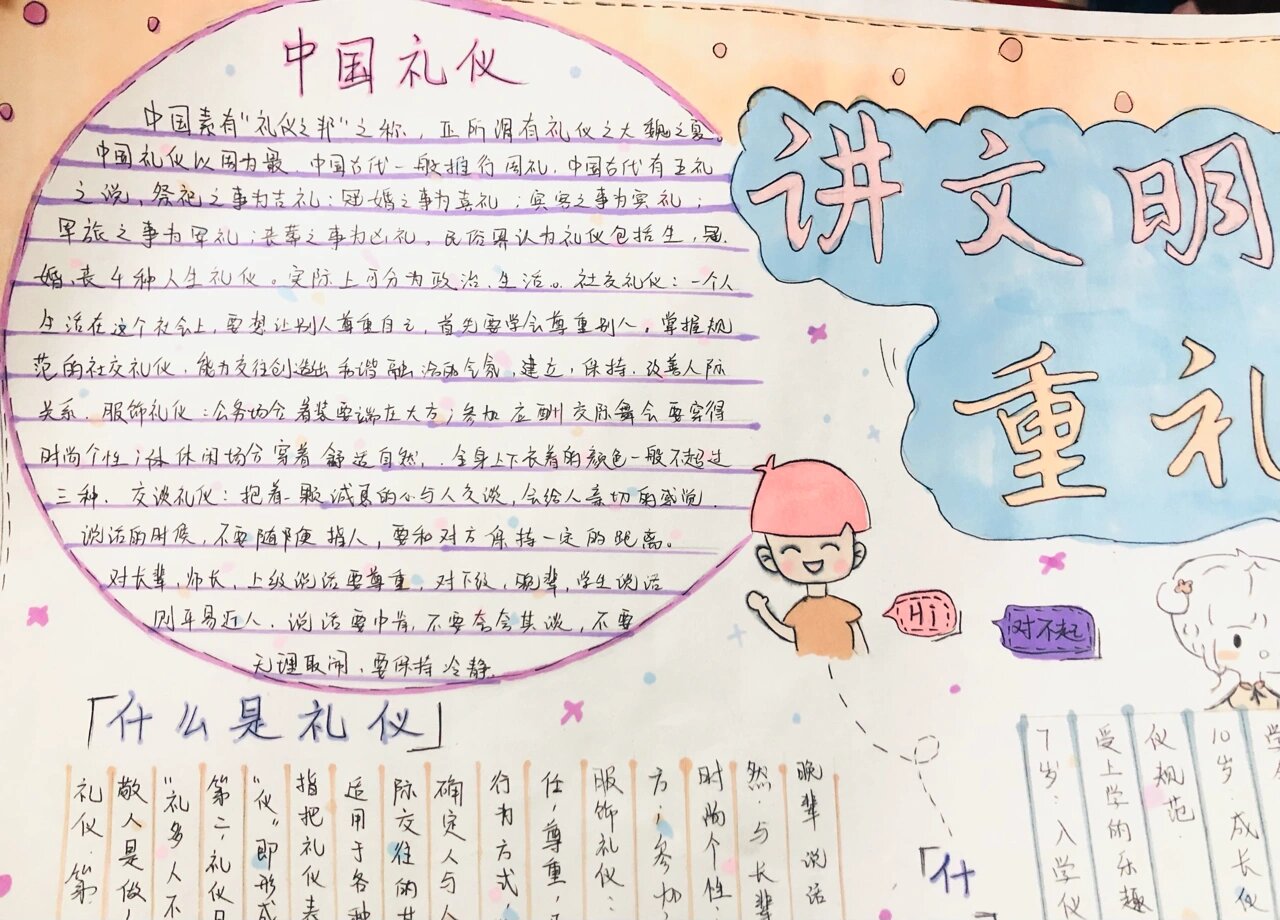 中国礼仪
中国素有"礼仪之邦"之称，正所谓有礼仪之大魏之夏。
中国礼仪以周为最．中国古代一般推行周礼．中国古代有五礼
之说，祭祀之事为吉礼；冠婚之事为喜礼；宾客之事为宾礼；
军旅之事为军礼；丧葬之事为凶礼。民俗界认为礼仪包括生，冠．
婚、丧4种人生礼仪。实际上可分为政治、生活。社交礼仪：一个人
生活在这个社会上，要想让别人尊重自己，首先要学会尊重别人，掌握规
范的社交礼仪．能为交往创造出和谐融洽的气氛，建立，保持．改善人际
关系．服饰礼仪：公务场合着装要端庄大方；参加应酬交际舞会要穿得
时尚个性；休闲场合穿着舒适自然．全身上下衣着的颜色一般不超过
三种．交谈礼仪：抱着一颗诚恳的心与人交谈，会给人亲切的感觉．
说话的时候，不要随便指人，要和对方保持一定的距离。
对长辈，师长，上级说话要尊重，对下级，晚辈，学生说话
则平易近人．说话要中肯，不要夸夸其谈，不要
无理取闹．要保持冷静．
讲文明
重礼
Hi
对不起
「什么是礼仪」
晚辈说话
然．与长辈
时尚个性；
方；参加
服饰礼仪：
任，尊重，
行为方式，
确定人与人
际交往的
适用于各种
指把礼仪表
"仪"即形式
第二，礼仪
"礼多人不
敬人是做
礼仪．第
「什
7岁：入学仪
受上学的乐趣
仪规范．
10岁：成长仪